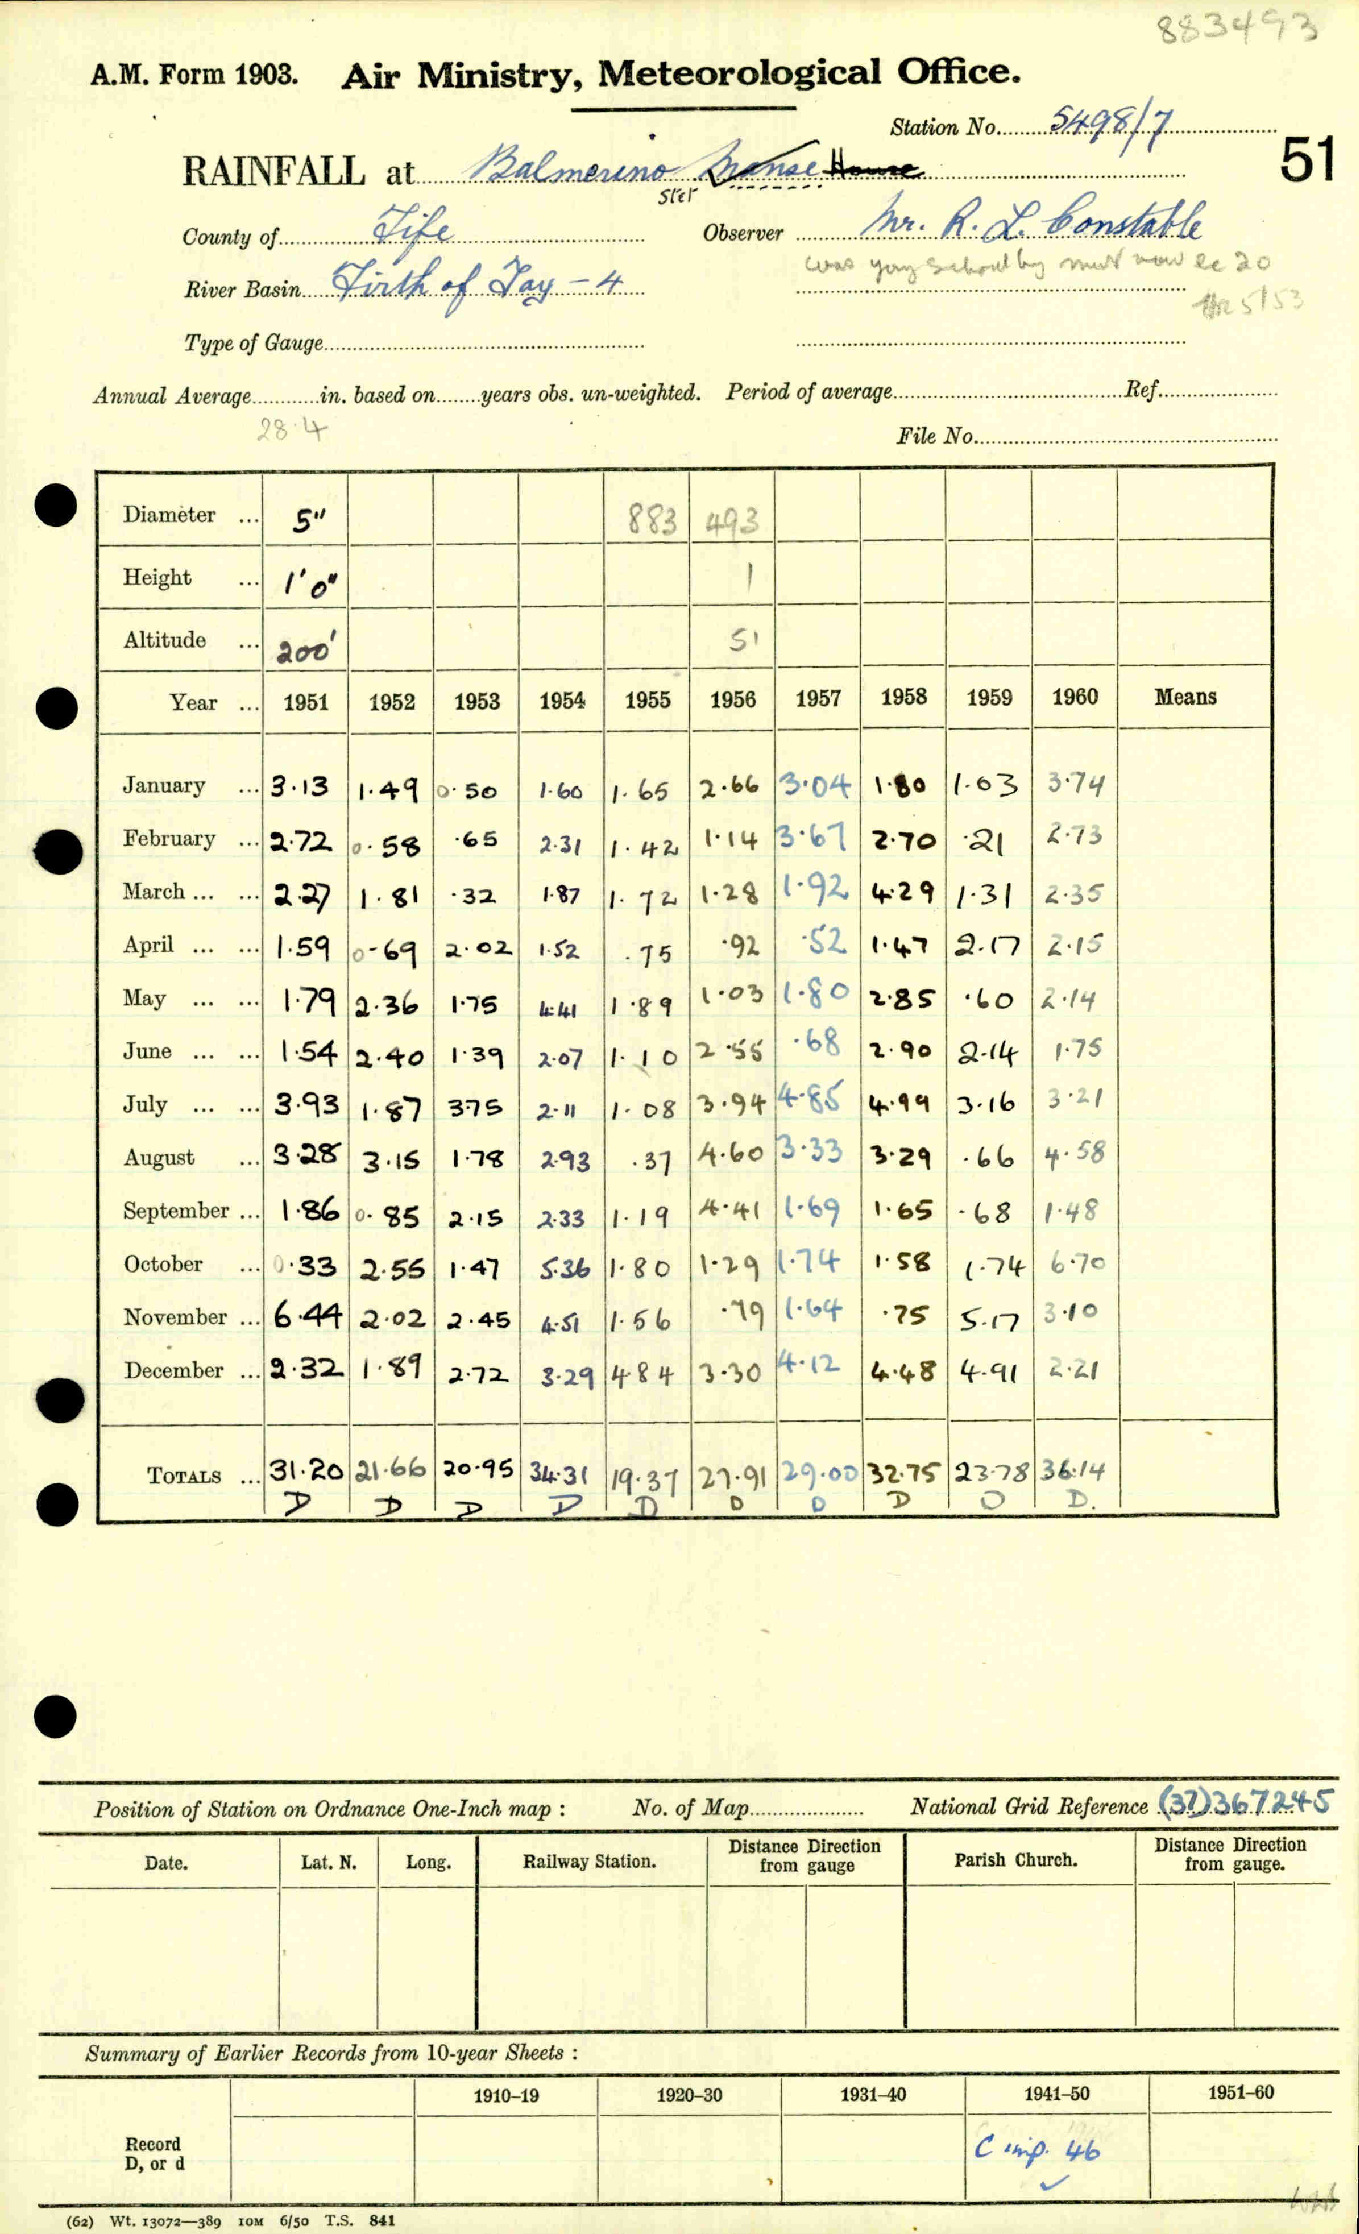 883493
A.M. Form 1903. Air Ministry, Meteorological Office.
Station No. 5498/7
51
RAINFALL at Balmerino Manse House
Stet
County of Fife Observer Mr. R. L. Constable
was yng schoolboy must now be 20
River Basin Firth of Tay - 4
5/53
Type of Gauge
Annual Average in. based on years obs. un-weighted. Period of average Ref.
28.4
File No.
Diameter ... 5" 883 493
Height ... 1'0" 1
Altitude ... 200' 51
Year ... 1951 1952 1953 1954 1955 1956 1957 1958 1959 1960 Means
January ... 3.13 1.49 0.50 1.60 1.65 2.66 3.04 1.80 1.03 3.74
February ... 2.72 0.58 .65 2.31 1.42 1.14 3.67 2.70 .21 2.73
March ... ... 2.27 1.81 .32 1.87 1.72 1.28 1.92 4.29 1.31 2.35
April ... ... 1.59 0.69 2.02 1.52 .75 .92 .52 1.47 2.17 2.15
May ... ... 1.79 2.36 1.75 4.41 1.89 1.03 1.80 2.85 .60 2.14
June ... ... 1.54 2.40 1.39 2.07 1.10 2.55 .68 2.90 2.14 1.75
July ... ... 3.93 1.87 375 2.11 1.08 3.94 4.85 4.99 3.16 3.21
August ... 3.28 3.15 1.78 2.93 .37 4.60 3.33 3.29 .66 4.58
September ... 1.86 0.85 2.15 2.33 1.19 4.41 1.69 1.65 .68 1.48
October ... 0.33 2.55 1.47 5.36 1.80 1.29 1.74 1.58 1.74 6.70
November ... 6.44 2.02 2.45 4.51 1.56 .79 1.64 .75 5.17 3.10
December ... 2.32 1.89 2.72 3.29 484 3.30 4.12 4.48 4.91 2.21
TOTALS ... 31.20 21.66 20.95 34.31 19.37 27.91 29.00 32.75 23.78 36.14
D D D D D D D D D D.
Position of Station on Ordnance One-Inch map : No. of Map National Grid Reference (37)367245
Date. Lat. N. Long. Railway Station. Distance from Direction gauge Parish Church. Distance from Direction gauge.
Summary of Earlier Records from 10-year Sheets :
1910–19 1920–30 1931–40 1941–50 1951–60
Record
D, or d
C imp. 46
(62) Wt. 13072—389 10M 6/50 T.S. 841